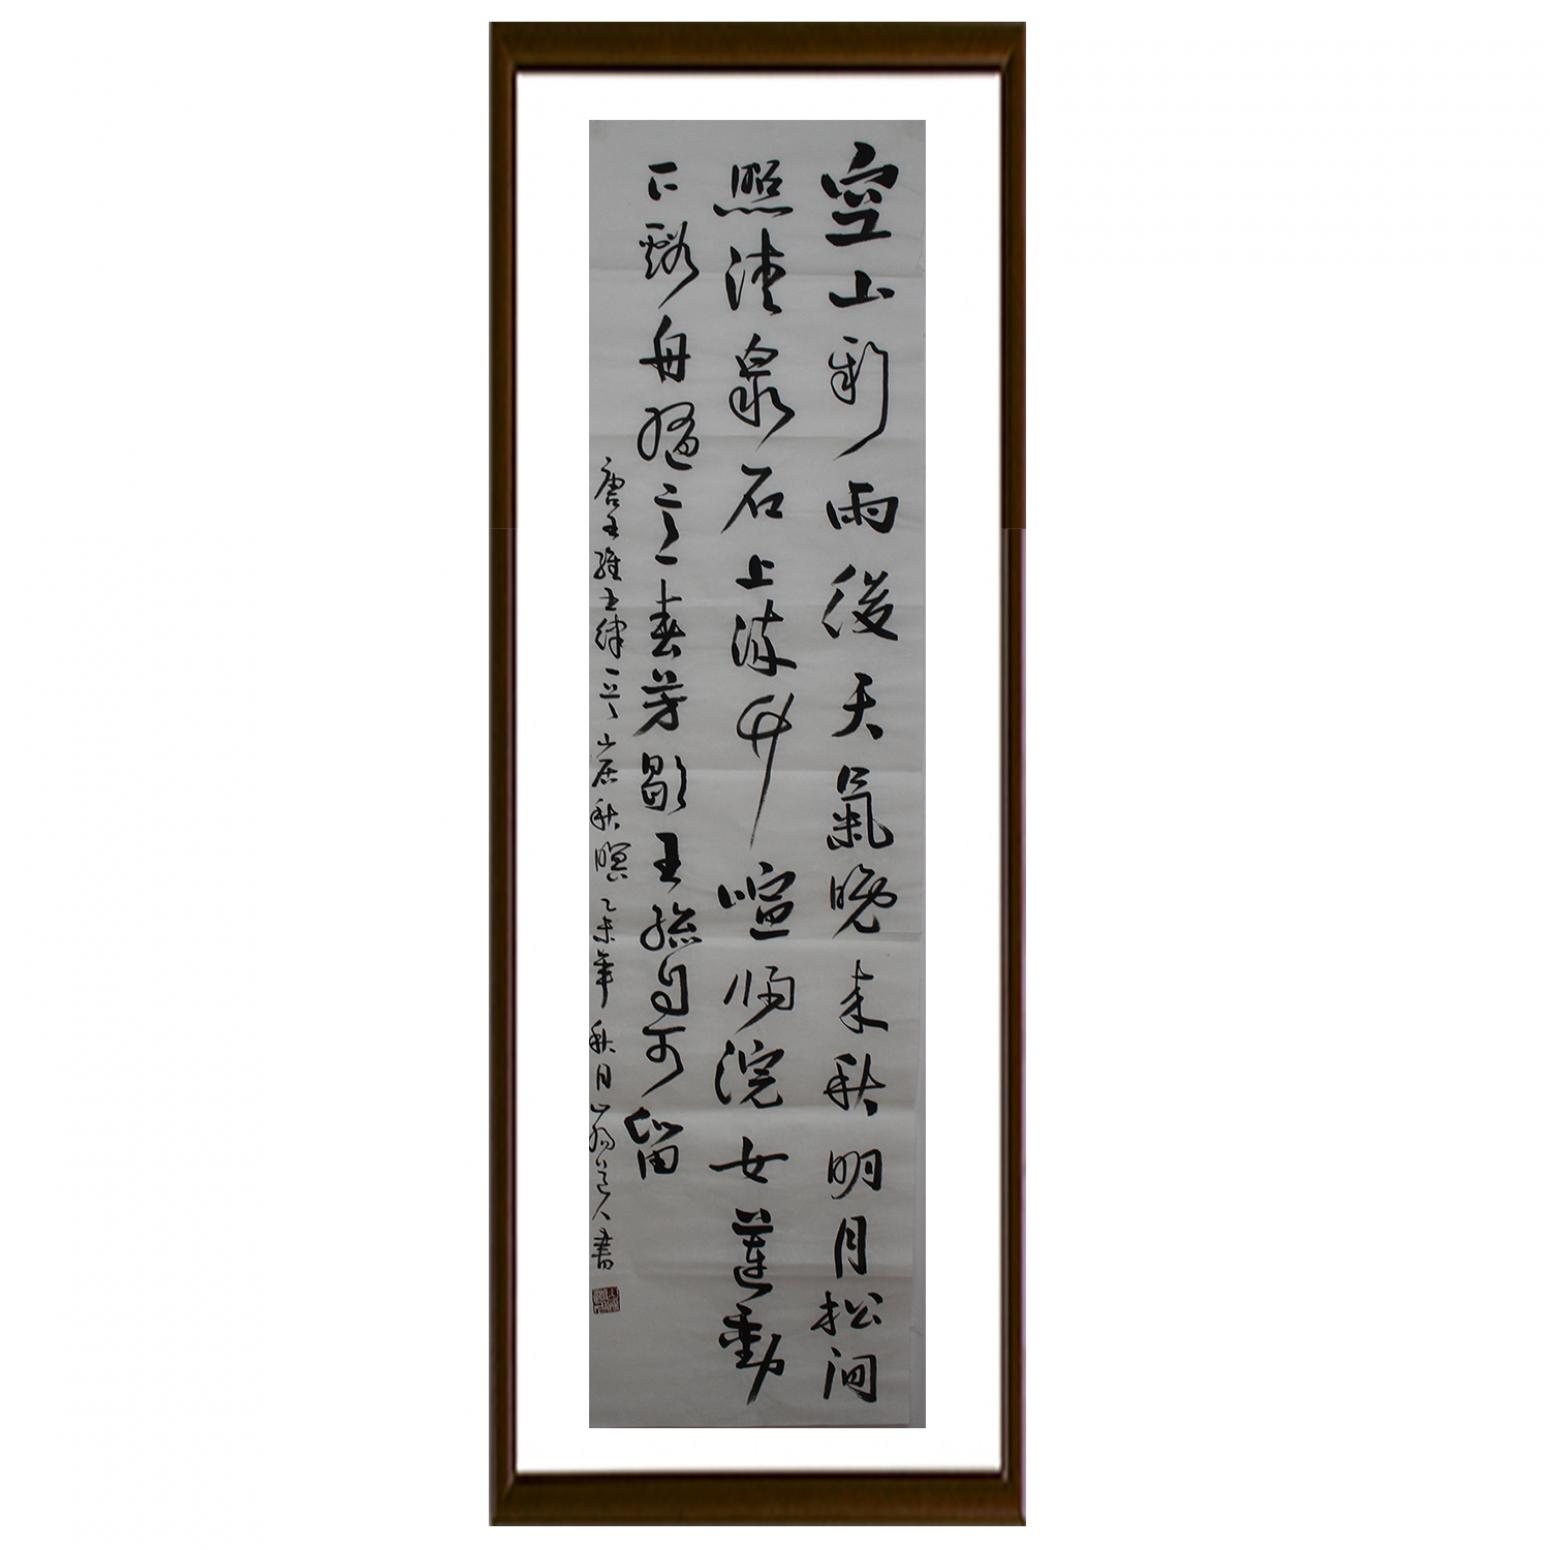 空山新雨後天氣晚来秋明月松间
照清泉石上流竹喧归浣女蓮動
下舟随意春芳歇王孫自可留
唐王維五律一首山居秋暝乙未年秋月山翁道人書